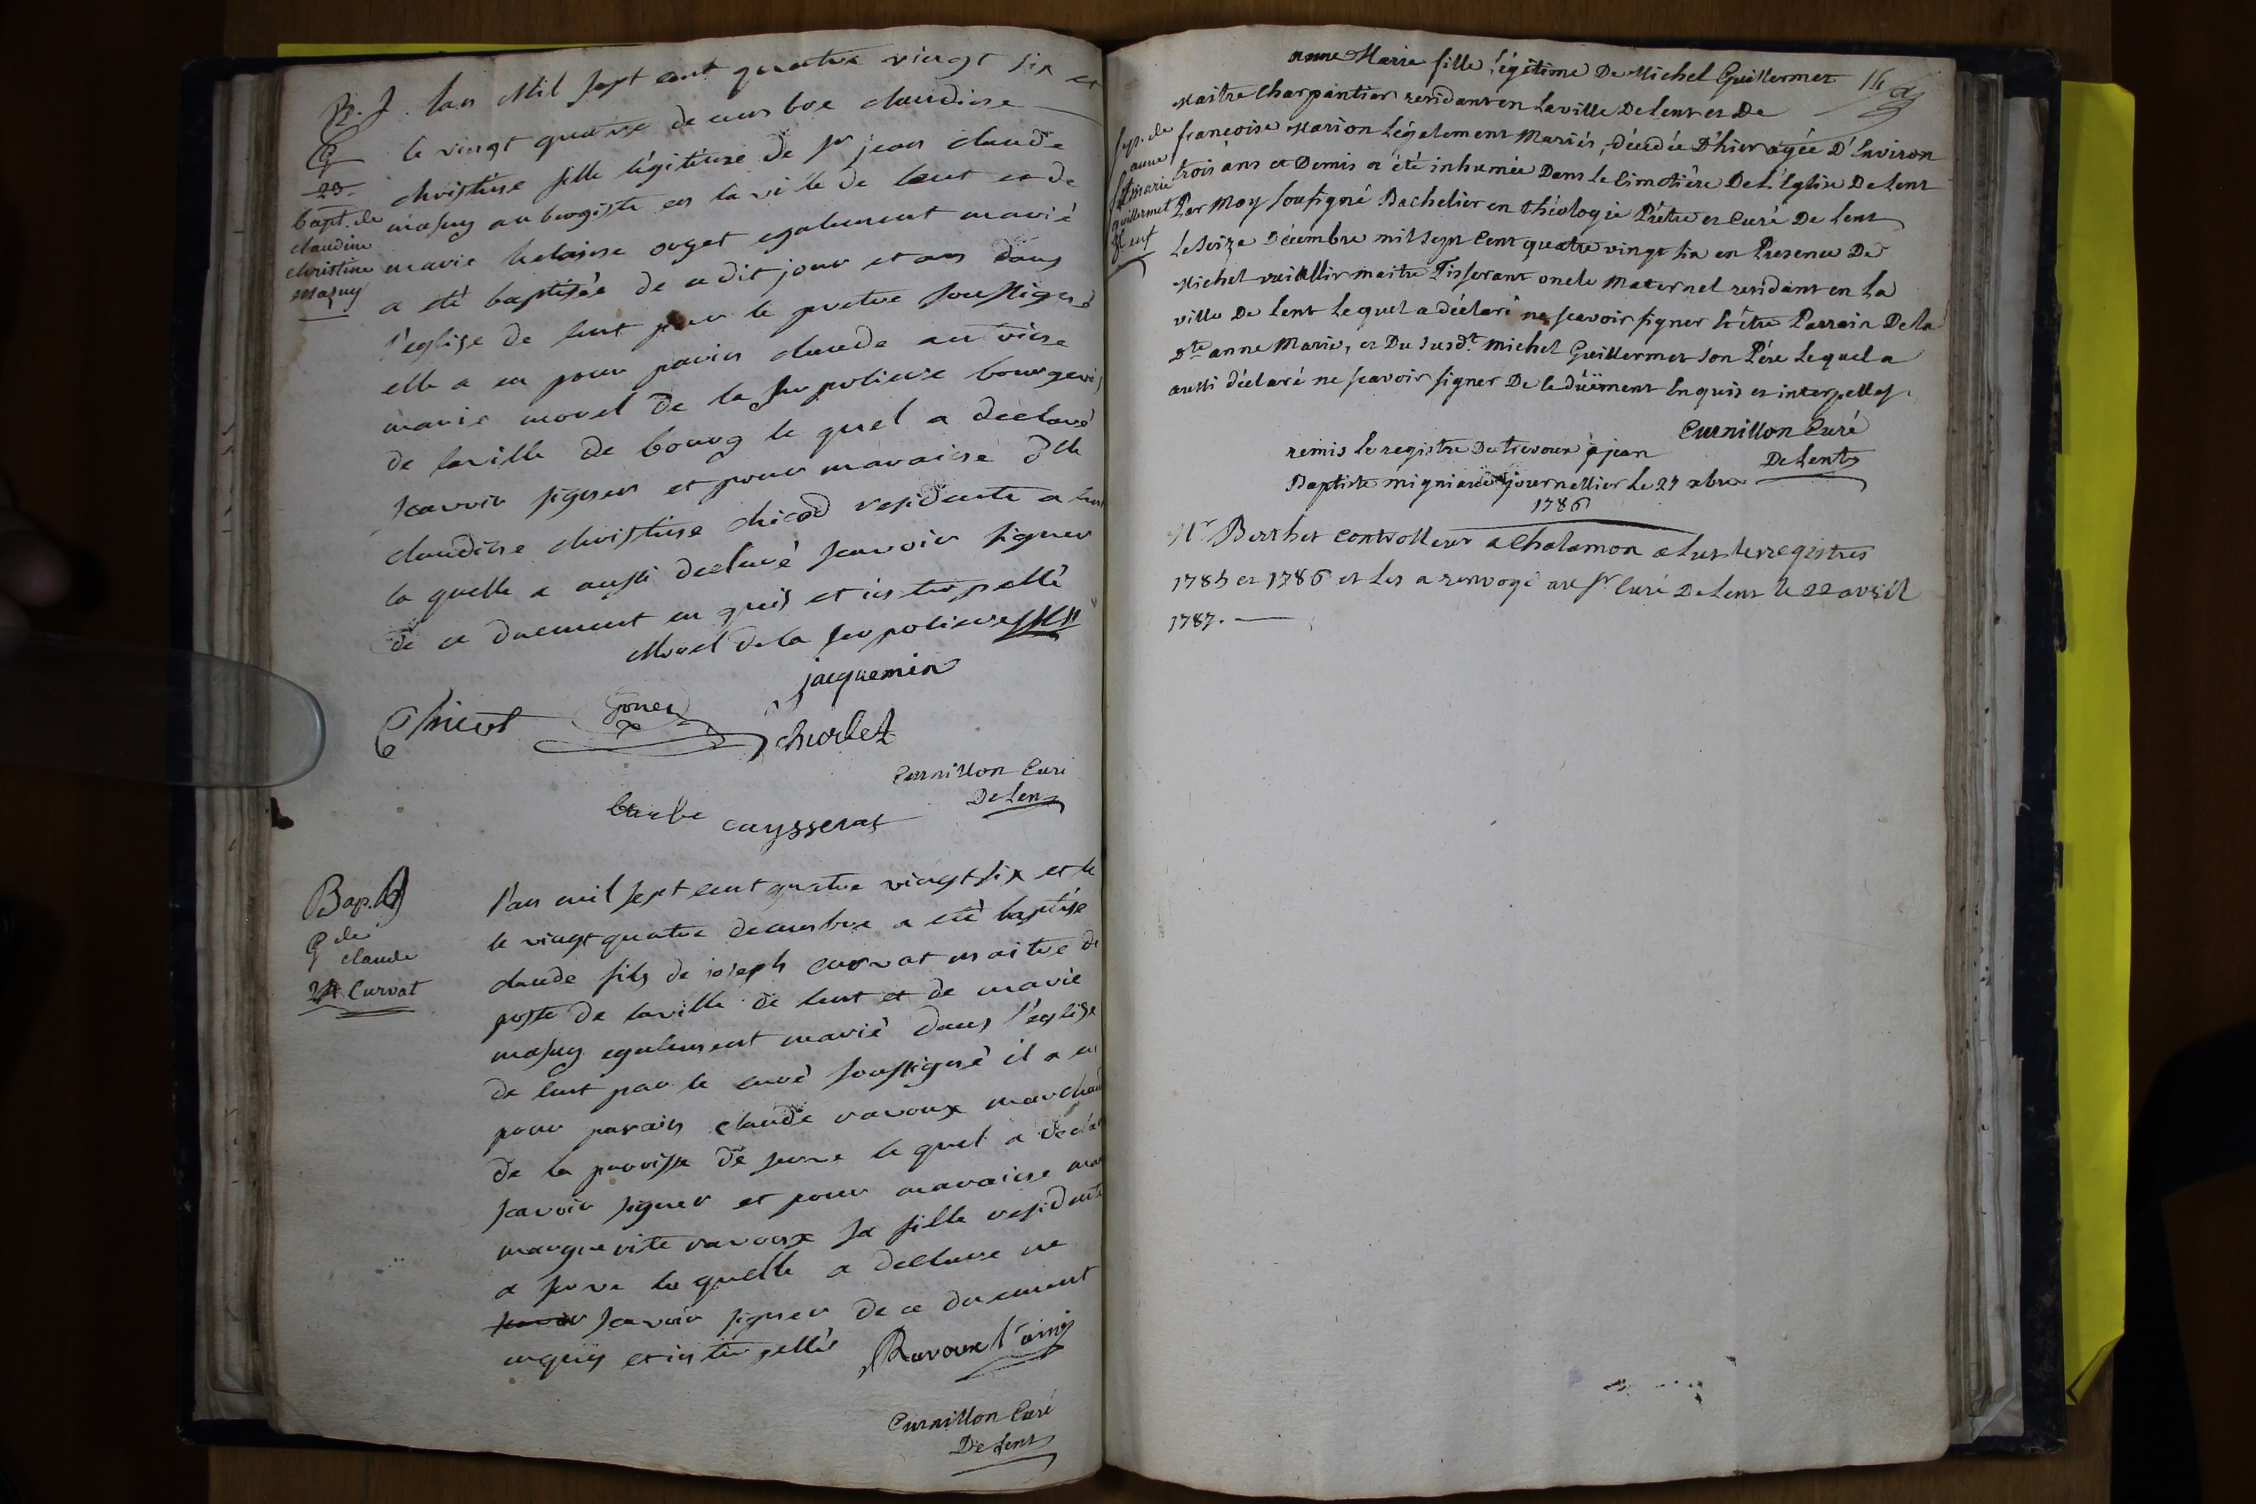 B. J.
G
23
bapt. de
claudine
christine
masuy
lan Mil sept cent quatre vingt six et
le vingt quatre decembre claudine
christine fille légitime de sr jean claude
masuy aubergiste en la ville de lent et de
marie helaine oyet egalement marié
a été baptisée de cedit jour et an dans
l'eglise de lent par le pretre soussigné
elle a eu pour parain claude antoine
marie morel de la bourgeois
de laville de bourg le quel a déclaré
scavoir signer et pour maraine dlle
claudine christine chicod residante a lent
la quelle a aussi declaré scavoir signer
de ce duement enquis et interpellé
Morel de la
jacquemin
Chicot
churlet
Curnillon Curé
De Lent
barbe cuysserat
Bap.
G de
claude
24 Curvat
l'an mil sept cent quatre vingt six et le
le vingt quatre decembre a eté baptisé
claude fils de joseph curvat maitre de
poste de laville de lent et de marie
masuy egalement marié dans l'eglise
de lent par le curé soussigné il a eu
pour parain claude ravoux marchand
de la paroisse de le quel a declaré
scavoir signer et pour maraine
marguerite ravoux sa fille residente
a la quelle a declare ne
scavoir signer de ce duement
enquis et interpellé Ravoux l'ainé
Curnillon Curé
De Lent
sep. de
anne
marie
guillermet
anne Marie fille légitime De Michel Guillermet
Maitre Charpantier residant en La ville De Lent et De
françoise Marion Légalement Mariés, décédée D'hier agée D'Environ
trois ans et Demis a été inhumée Dans Le Cimetière De L'Eglise De Lent
Par Moy soussigné Bachelier en théologie Prêtre et Curé De Lent
Le Seize Décembre mil sept Cent quatre vingt six en Presence De
Michel maitre Tisserant oncle Maternel residant en La
ville De Lent Lequel a déclaré ne scavoir signer Et être Parrain De la
Dte anne Marie, et Du susdt Michel Guillermet son Pére Lequel a
aussi déclaré ne scavoir signer De Ce dûëment Enquis et interpellés.
Curnillon Curé
De Lent
remis le registre De trevoux à jean
Baptiste journellier Le 27 xbre
1786
Mr Berthet controlleur a Chalamon a Lut Les registres
1785 et 1786 et Les a renvoyé au sr Curé De Lent le 22 avril
1787.